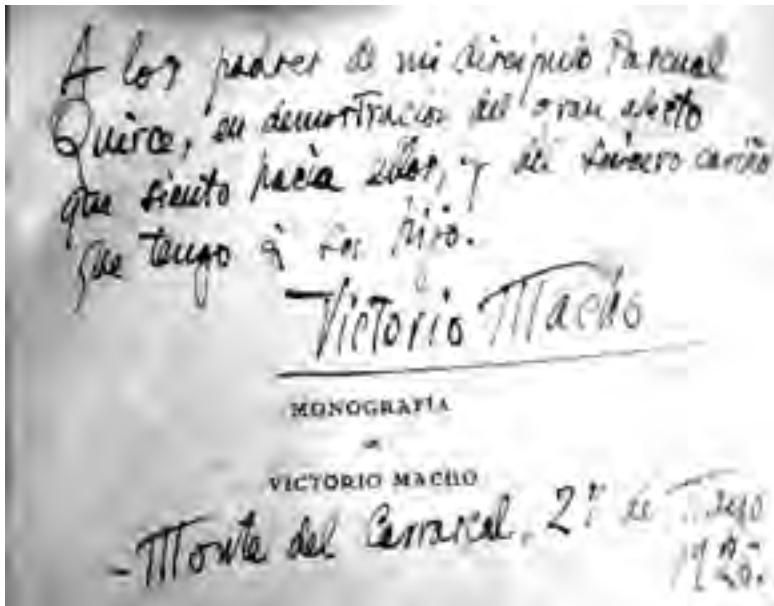 A los padres de mi discípulo Pascual
Quirce, en demostración del gran afecto
que siento hacia ellos, y del sincero cariño
que tengo á su hijo.
Victorio Macho
MONOGRAFIA
DE
VICTORIO MACHO
- Monte del Carrascal, de